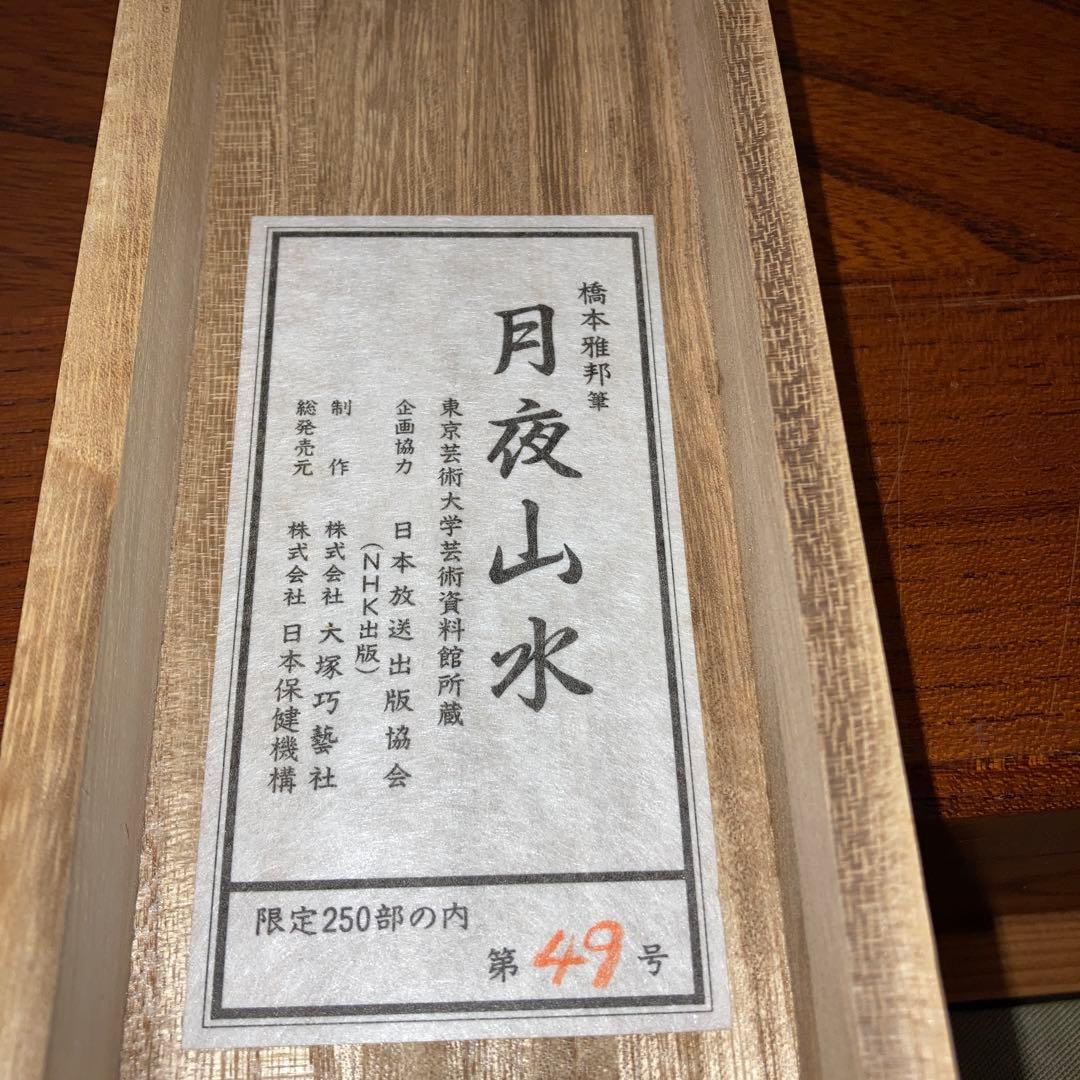 橋本雅邦筆
月夜山水
東京芸術大学芸術資料館所蔵
企画協力 日本放送出版協会
（NHK出版）
制作 株式会社 大塚巧藝社
総発売元 株式会社 日本保健機構
限定250部の内
第49号